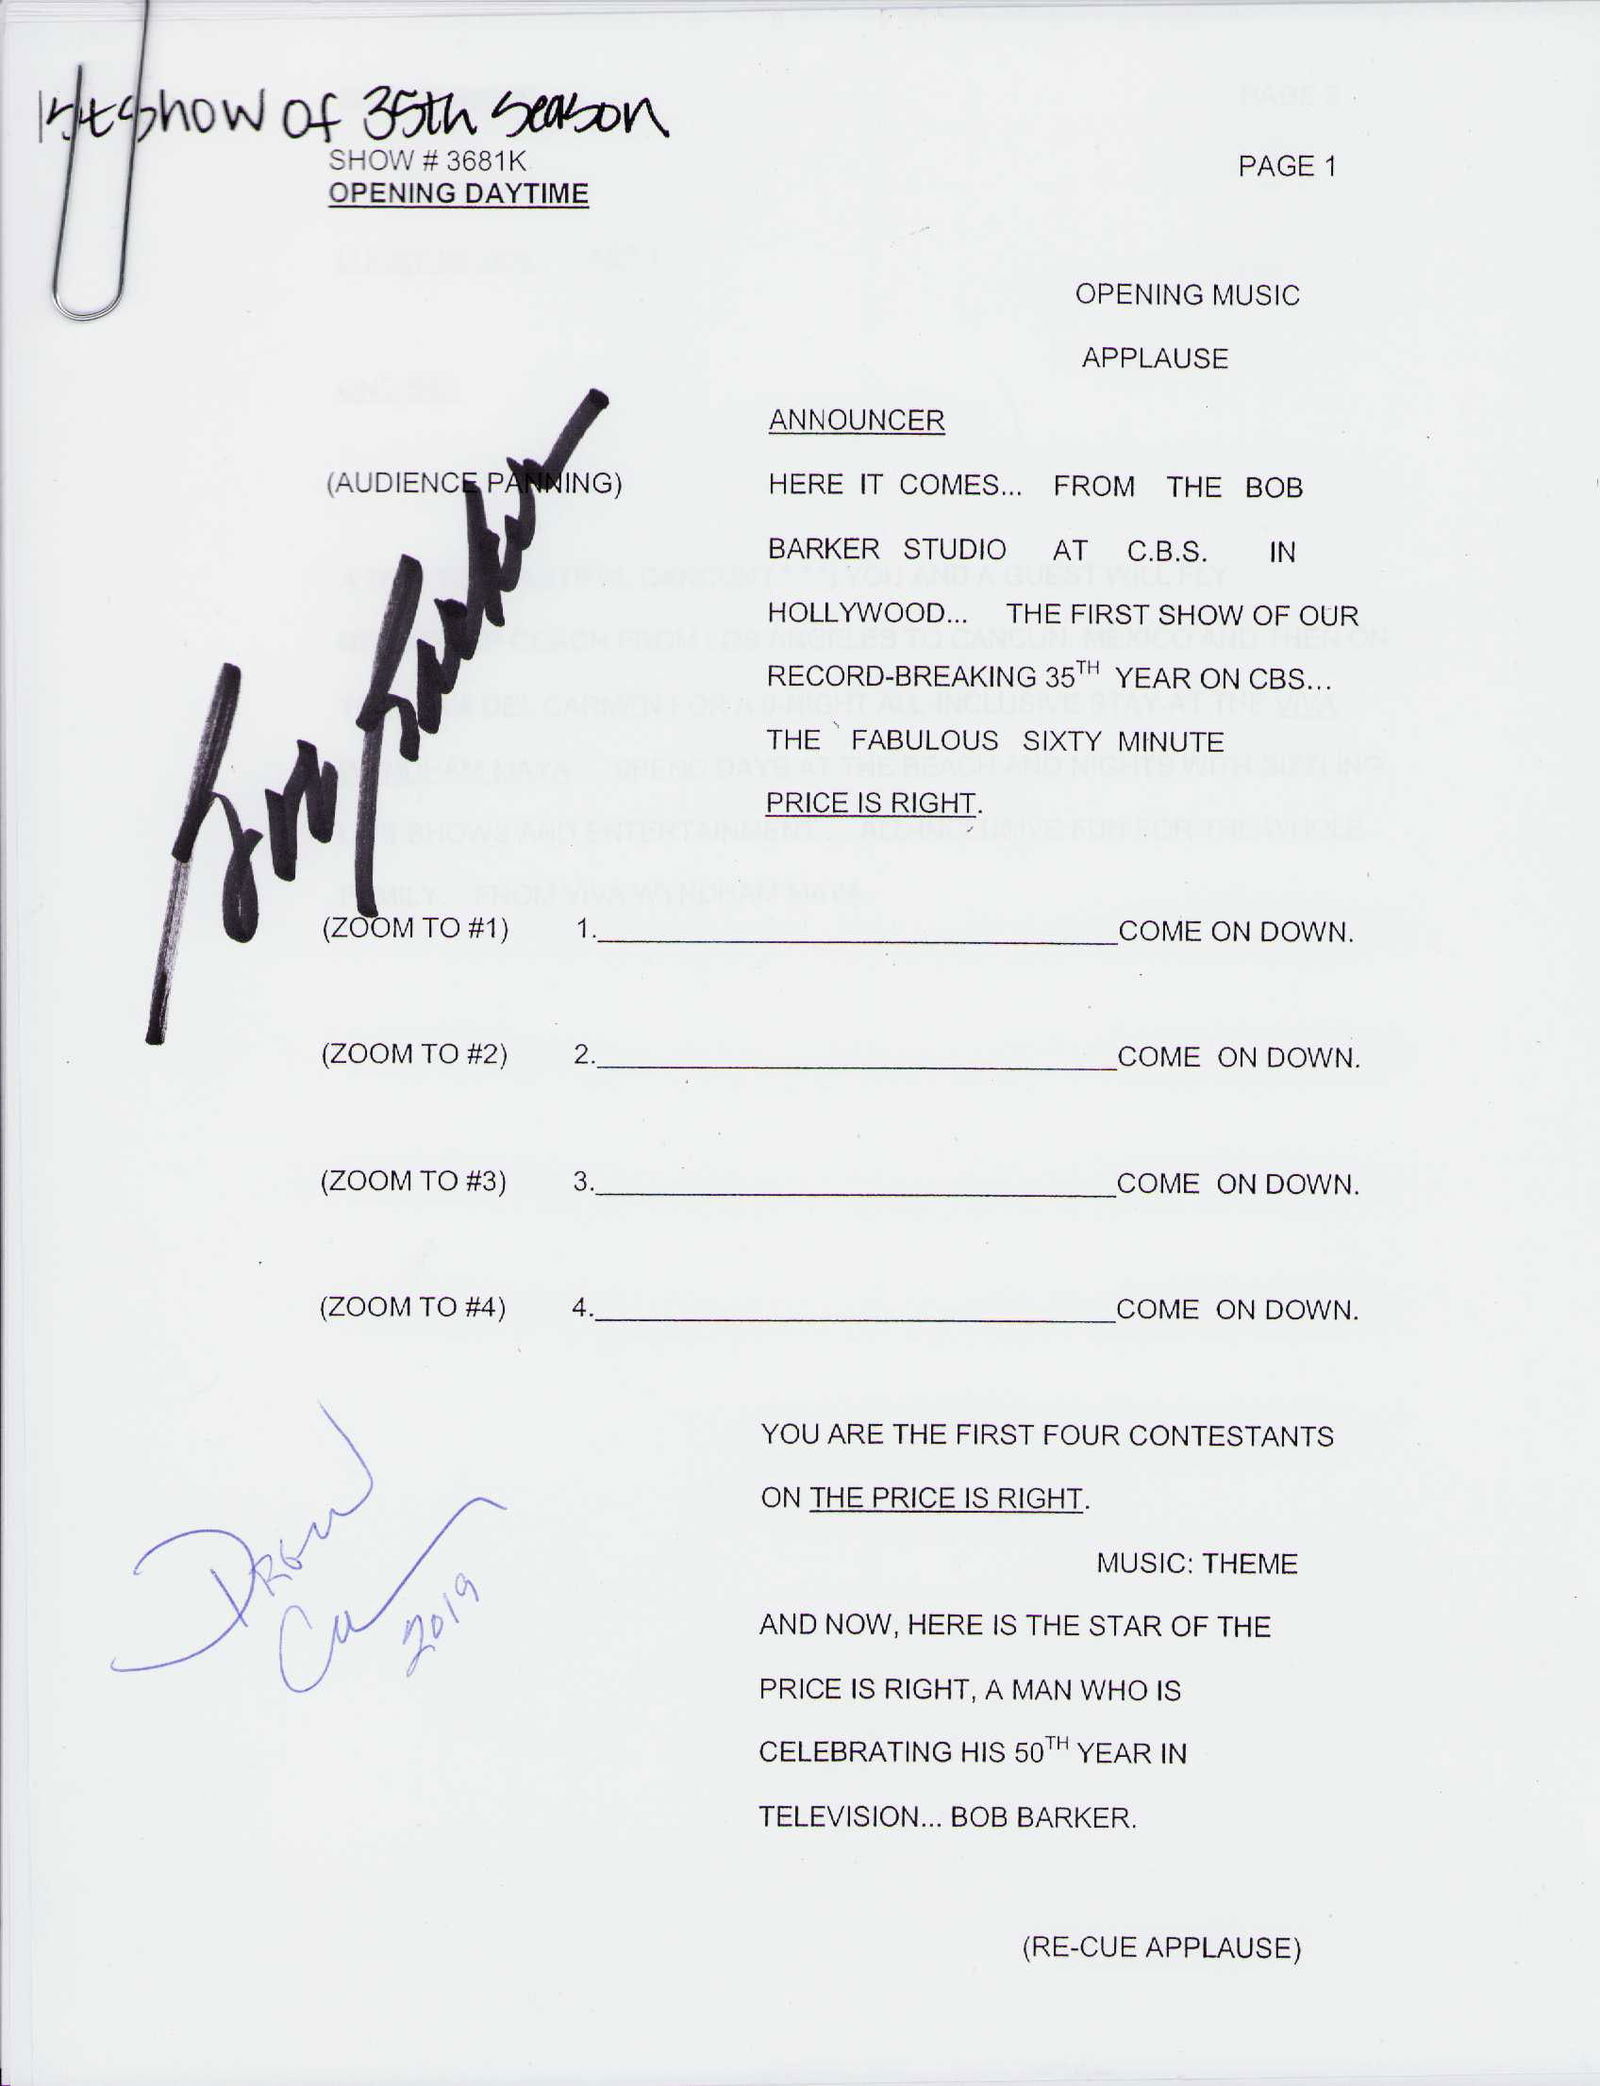 1st show of 35th season
SHOW # 3681K
PAGE 1
OPENING DAYTIME
OPENING MUSIC
APPLAUSE
ANNOUNCER
(AUDIENCE PANNING)
HERE IT COMES... FROM THE BOB
BARKER STUDIO AT C.B.S. IN
HOLLYWOOD... THE FIRST SHOW OF OUR
RECORD-BREAKING 35TH YEAR ON CBS...
THE FABULOUS SIXTY MINUTE
PRICE IS RIGHT.
Bob Barker
(ZOOM TO #1) 1.____________________COME ON DOWN.
(ZOOM TO #2) 2.____________________COME ON DOWN.
(ZOOM TO #3) 3.____________________COME ON DOWN.
(ZOOM TO #4) 4.____________________COME ON DOWN.
YOU ARE THE FIRST FOUR CONTESTANTS
ON THE PRICE IS RIGHT.
MUSIC: THEME
AND NOW, HERE IS THE STAR OF THE
PRICE IS RIGHT, A MAN WHO IS
CELEBRATING HIS 50TH YEAR IN
TELEVISION... BOB BARKER.
Drew
Carey
2019
(RE-CUE APPLAUSE)